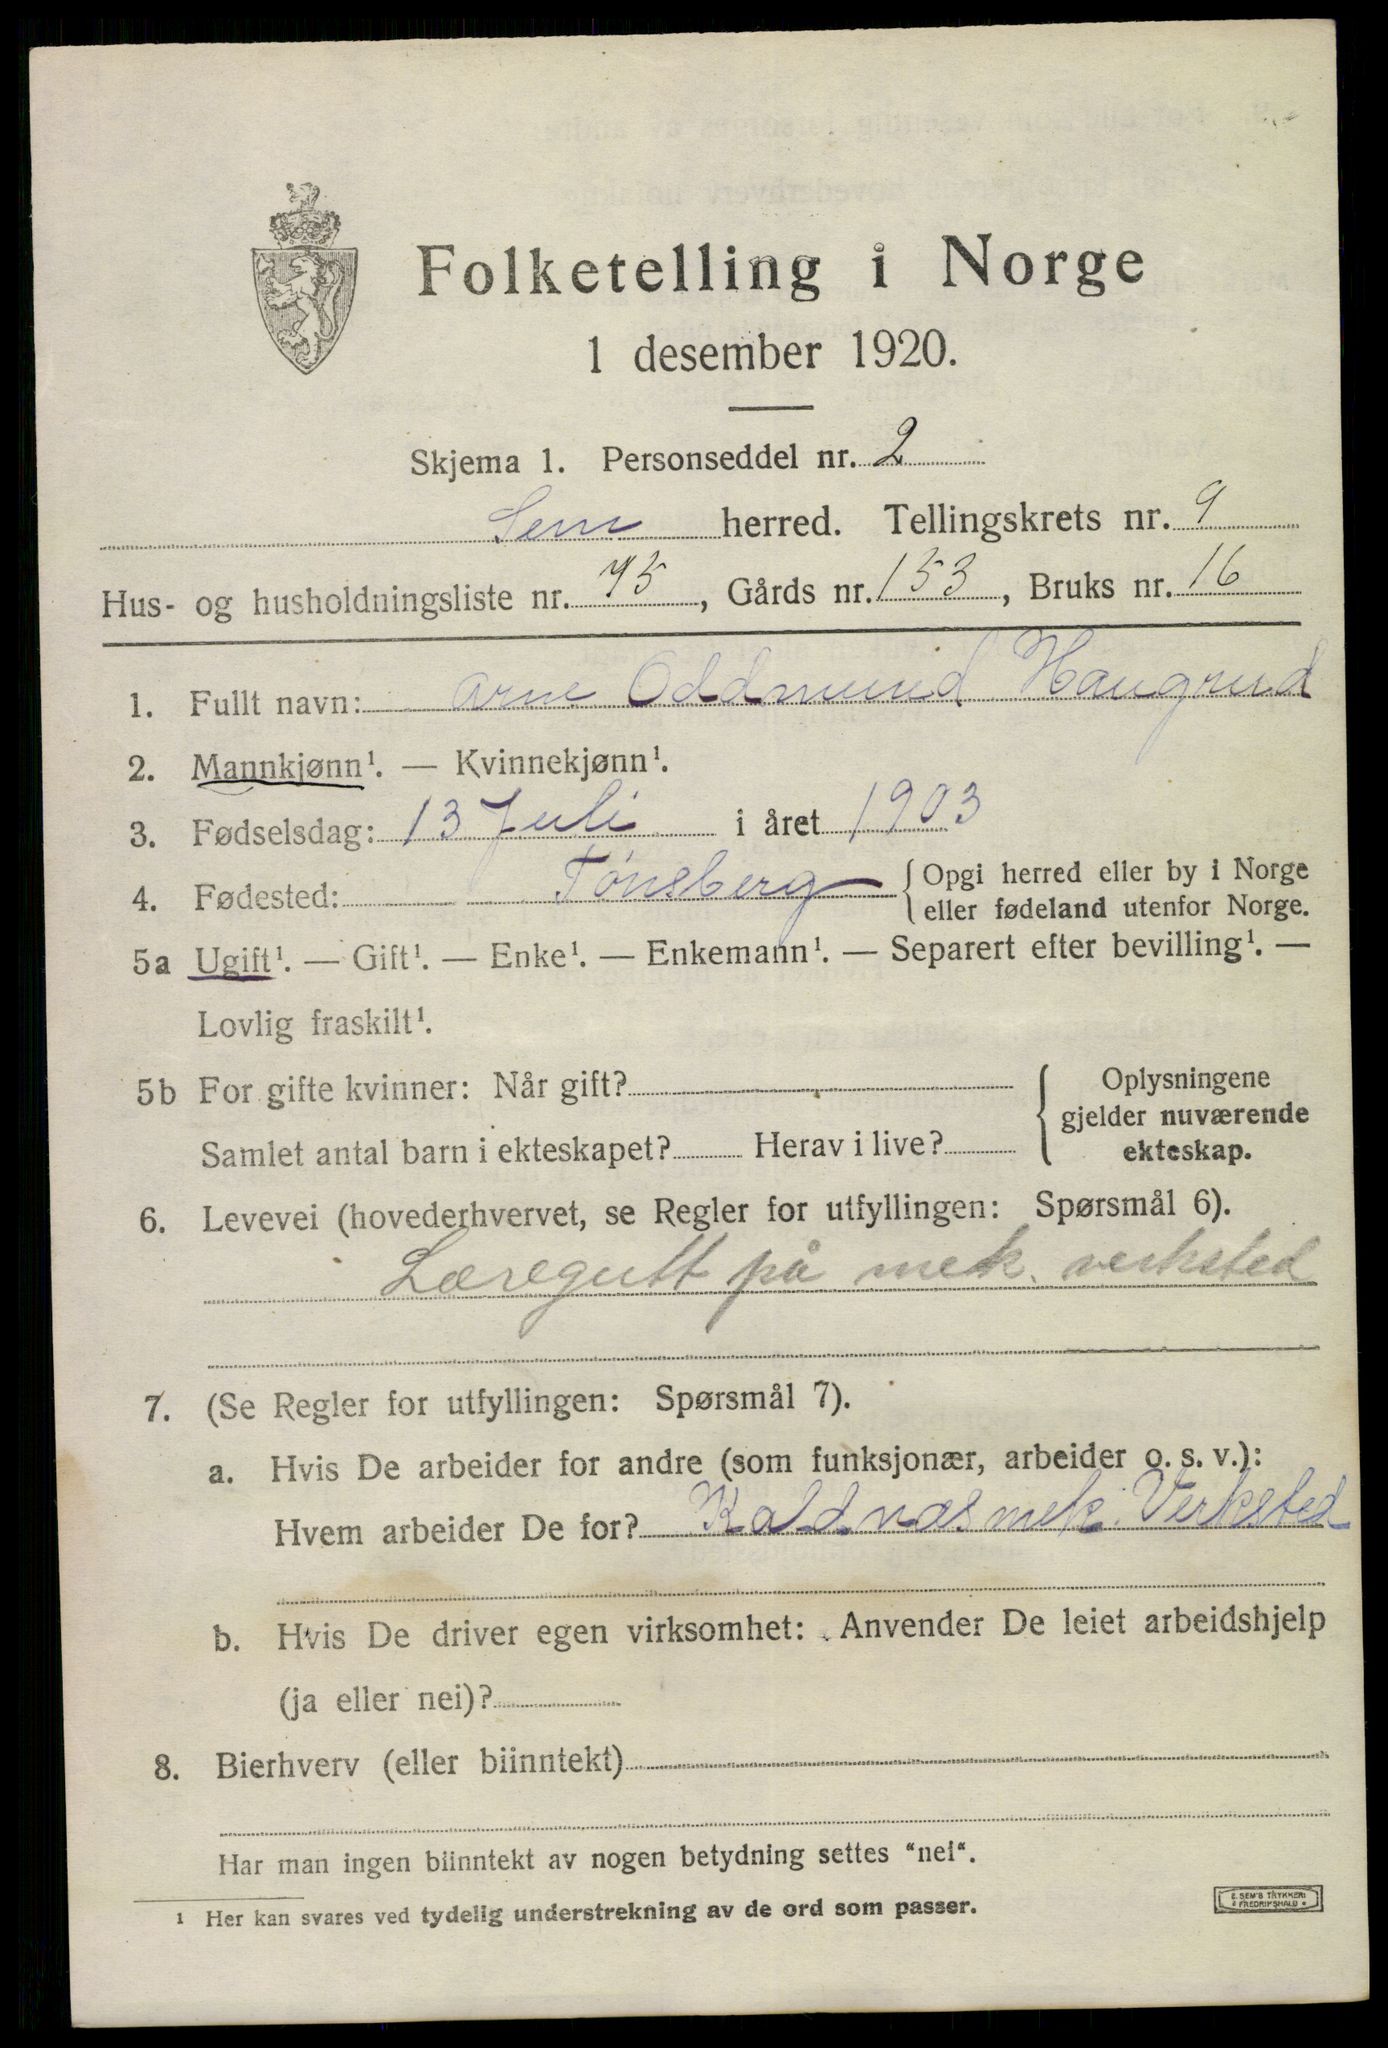 Folketelling i Norge
1 desember 1920.
Skjema 1. Personseddel nr. 2
Sem herred. Tellingskrets nr. 9
Hus- og husholdningsliste nr. 75, Gårds nr. 153, Bruks nr. 16
1. Fullt navn: Arne Oddmund Haugrud
2. Mannkjønn¹. — Kvinnekjønn¹.
3. Fødselsdag: 13 Juli i året 1903
4. Fødested: Tønsberg { Opgi herred eller by i Norge
eller fødeland utenfor Norge.
5a Ugift¹. — Gift¹. — Enke¹. — Enkemann¹. — Separert efter bevilling¹. —
Lovlig fraskilt¹.
5b For gifte kvinner: Når gift? { Oplysningene
gjelder nuværende
Samlet antal barn i ekteskapet? Herav i live? ekteskap.
6. Levevei (hovederhvervet, se Regler for utfyllingen: Spørsmål 6).
Læregutt på mek. verksted
7. (Se Regler for utfyllingen: Spørsmål 7).
a. Hvis De arbeider for andre (som funksjonær, arbeider o. s. v.):
Hvem arbeider De for? Kaldnæs mek. Verksted
b. Hvis De driver egen virksomhet: Anvender De leiet arbeidshjelp
(ja eller nei)?
8. Bierhverv (eller biinntekt)
Har man ingen biinntekt av nogen betydning settes "nei".
¹ Her kan svares ved tydelig understrekning av de ord som passer.
E. SEM'S TRYKKERI
FREDRIKSHALD